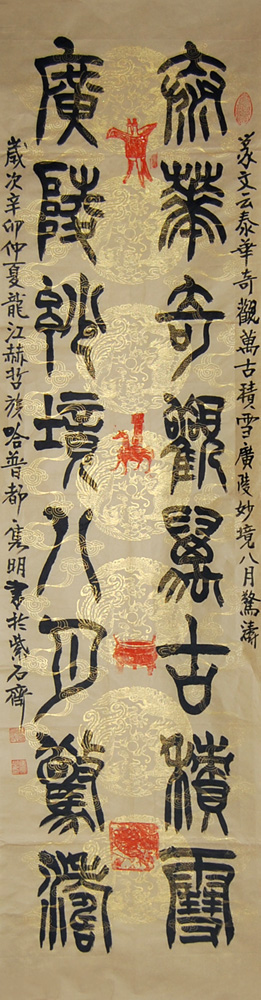 篆文云泰華奇觀萬古積雪廣陵妙境八月驚濤
泰華奇觀萬古積雪
廣陵妙境八月驚濤
歲次辛卯仲夏龍江赫哲族哈普都·雋明書於紫石齋